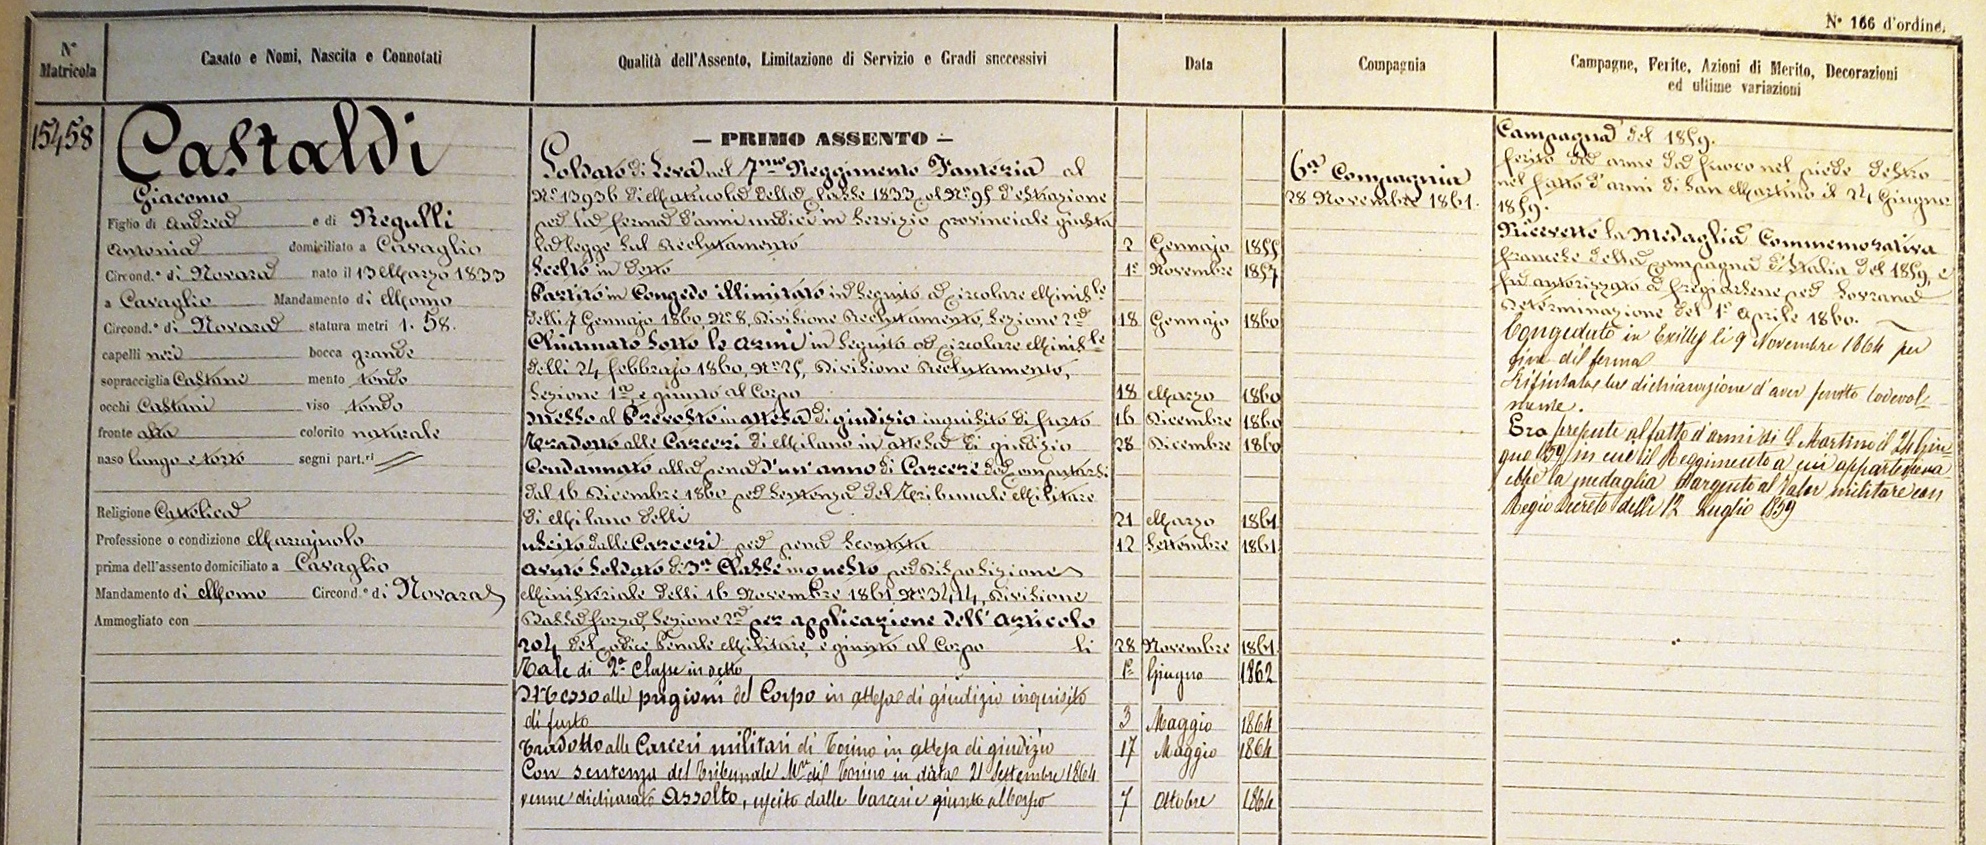 Nº 166 d'ordine.
Nº Matricola
Casato e Nomi, Nascita e Connotati
Qualità dell'Assento, Limitazione di Servizio e Gradi successivi
Data
Compagnia
Campagne, Ferite, Azioni di Merito, Decorazioni
ed ultime variazioni
15458
Castaldi
Giacomo
Figlio di Andrea e di Regulli
Antonia domiciliato a Cavaglio
Circond.º di Novara nato il 13 Marzo 1833
a Cavaglio Mandamento di Momo
Circond.º di Novara statura metri 1. 58.
capelli neri bocca grande
sopracciglia Castane mento tondo
occhi Castani viso tondo
fronte alta colorito naturale
naso lungo e torto segni part.ri
Religione Cattolica
Professione o condizione
prima dell'assento domiciliato a Cavaglio
Mandamento di Momo Circond.º di Novara
Ammogliato con
— PRIMO ASSENTO —
Soldato di Leva nel 7mo Reggimento Fanteria al
Nº 13936 di Matricola della Classe 1833 col Nº 95 d'estrazione
per la ferma d'anni undici in servizio provinciale giusta
la legge sul Reclutamento 2 Gennajo 1855
Scelto in detto 1º Novembre 1857
Partito in Congedo illimitato in seguito a circolare Minist.le
delli 7 Gennajo 1860, Nº 8, Divisione Reclutamento, Sezione 2a 18 Gennajo 1860
Chiamato sotto le armi in seguito a circolare Minist.le
delli 24 febbrajo 1860, Nº 25, Divisione Reclutamento,
Sezione 1a, e giunto al Corpo 18 Marzo 1860
Messo al Prevosto in attesa di giudizio inquisito di furto 16 Dicembre 1860
Tradotto alle Carceri di Milano in attesa di giudizio 28 Dicembre 1860
Condannato alla pena d'un'anno di Carcere da computarsi
dal 16 Dicembre 1860 per sentenza del Tribunale Militare
di Milano delli 21 Marzo 1861
Uscito dalle Carceri per pena scontata 12 Settembre 1861
Avuto Soldato di 3a Classe in questo per disposizione
Ministeriale delli 16 Novembre 1861 Nº 3414, Divisione
Bassa forza, Sezione 2a per applicazione dell'articolo
204 del Codice Penale Militare, e giunto al Corpo li 28 Novembre 1861
Tale di 2a Classe in detto 1º Giugno 1862
Messo alle prigioni del Corpo in attesa di giudizio inquisito
di furto 3 Maggio 1864
Tradotto alle Carceri militari di Torino in attesa di giudizio 17 Maggio 1864
Con sentenza del Tribunale M.re di Torino in data 21 Settembre 1864
venne dichiarato Assolto, uscito dalle Carceri e giunto al Corpo 7 Ottobre 1864
6a Compagnia
28 Novembre 1861.
Campagna del 1859.
ferito da arma da fuoco nel piede destro
nel fatto d'armi di San Martino il 24 Giugno
1859.
Ricevette la Medaglia Commemorativa
francese della campagna d'Italia del 1859, e
fu autorizzato a fregiarsene per Sovrana
determinazione del 1º Aprile 1860.
Congedato in Exilles li 9 Novembre 1864 per
fine di ferma
Rifiutatas la dichiarazione d'aver servito lodevol-
mente.
Era presente al fatto d'armi di S. Martino il 24 Giu-
gno 1859 in cui il Reggimento a cui apparteneva
ebbe la medaglia d'argento al Valor militare con
Regio Decreto delli 12 Luglio 1859